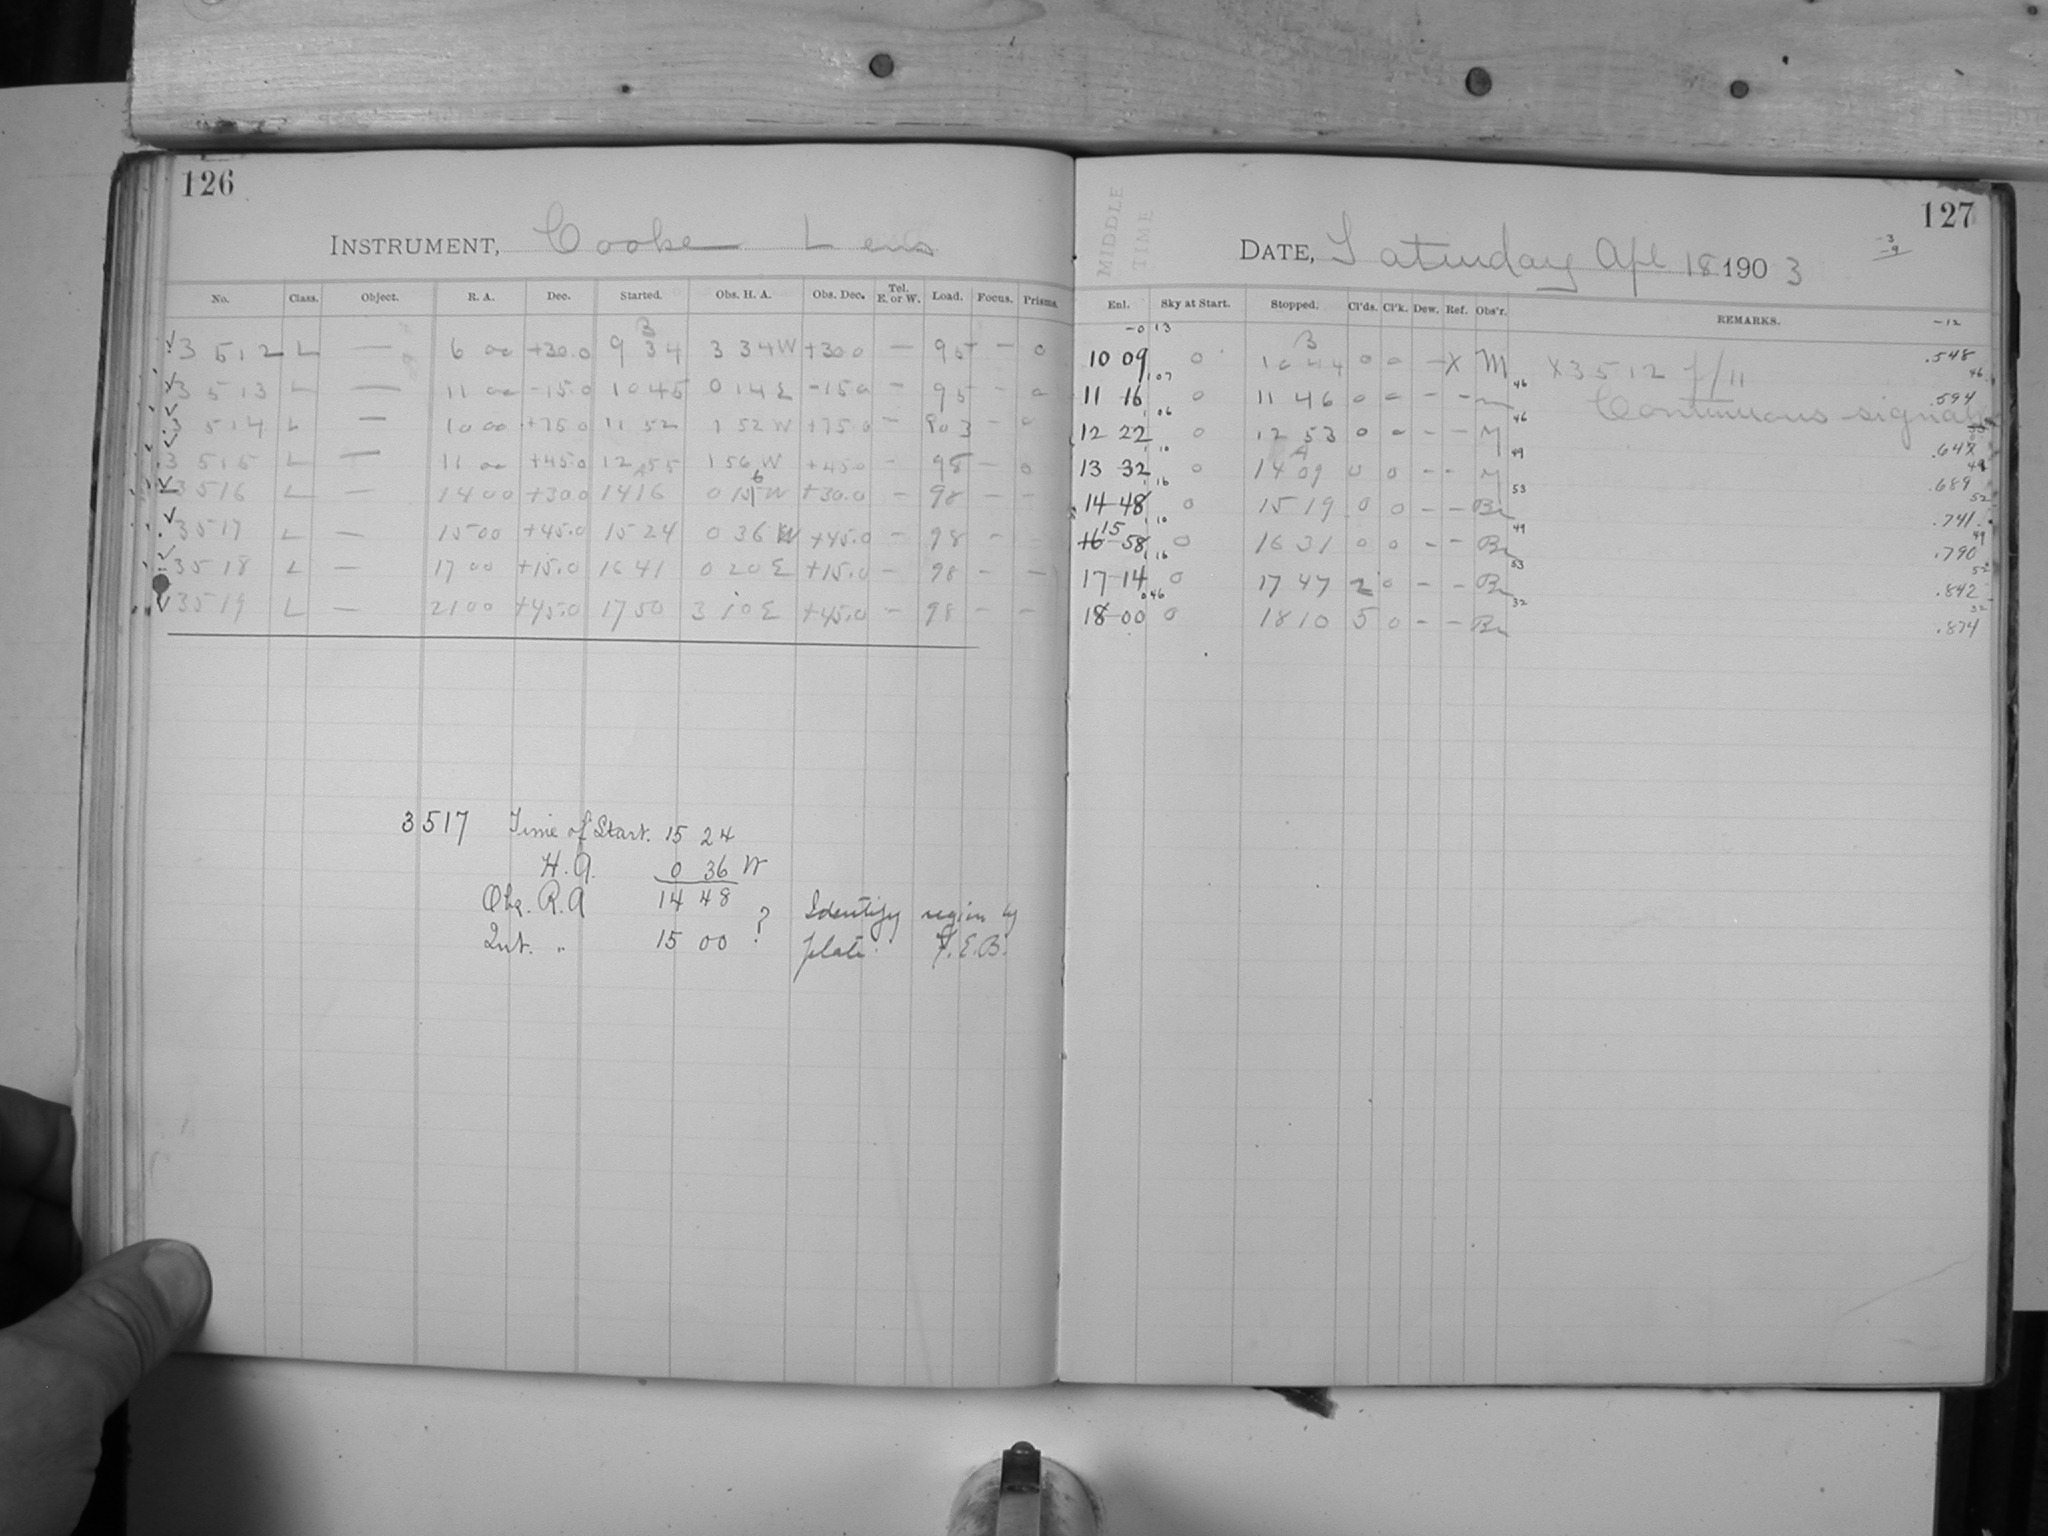 126
INSTRUMENT, Cooke Lens
No. Class. Object. R. A. Dec. Started. Obs. H. A. Obs. Dec. Tel. E. or W. Load. Focus. Prisms.
B
3512 L — 6 00 +30.0 9 34 3 34 W +30.0 — 95 — 0
3513 L — 11 00 -15.0 10 45 0 14 E -15.0 — 95 — 0
3514 L — 10 00 +75.0 11 52 1 52 W +75.0 — 803 — 0
3515 L — 11 00 +45.0 12 55 1 56 W +45.0 — 98 — 0
3516 L — 14 00 +30.0 14 16 0 16 W +30.0 — 98 — —
3517 L — 15 00 +45.0 15 24 0 36 W +45.0 — 98 — —
3518 L — 17 00 +15.0 16 41 0 20 E +15.0 — 98 — —
3519 L — 21 00 +45.0 17 50 3 10 E +45.0 — 98 — —
3517 Time of Start. 15 24
H.A. 0 36 W
Obs. R.A 14 48
Int. " 15 00 ?
Identify region by
plate. F.E.B.
127
MIDDLE
TIME
DATE, Saturday Apl 18 1903
-3
-9
Enl. Sky at Start. Stopped. Cl'ds. Cl'k. Dew. Ref. Obs'r. REMARKS.
-0 13 -12
B
10 09 0 10 44 0 0 — X M X3512 f/11 .548
1 07 46 46
11 16 0 11 46 0 0 — — Continuous signals .594
1 06 46
12 22 0 12 53 0 0 — — M .643
1 10 A 49 49
13 32 0 14 09 0 0 — — M .689
1 16 53 52
14 48 0 15 19 0 0 — — Br .741
1 10 49 49
15
16 58 0 16 31 0 0 — — Br .790
1 16 53 52
17 14 0 17 47 2 0 — — Br .842
0 46 32 32
18 00 0 18 10 5 0 — — Br .874